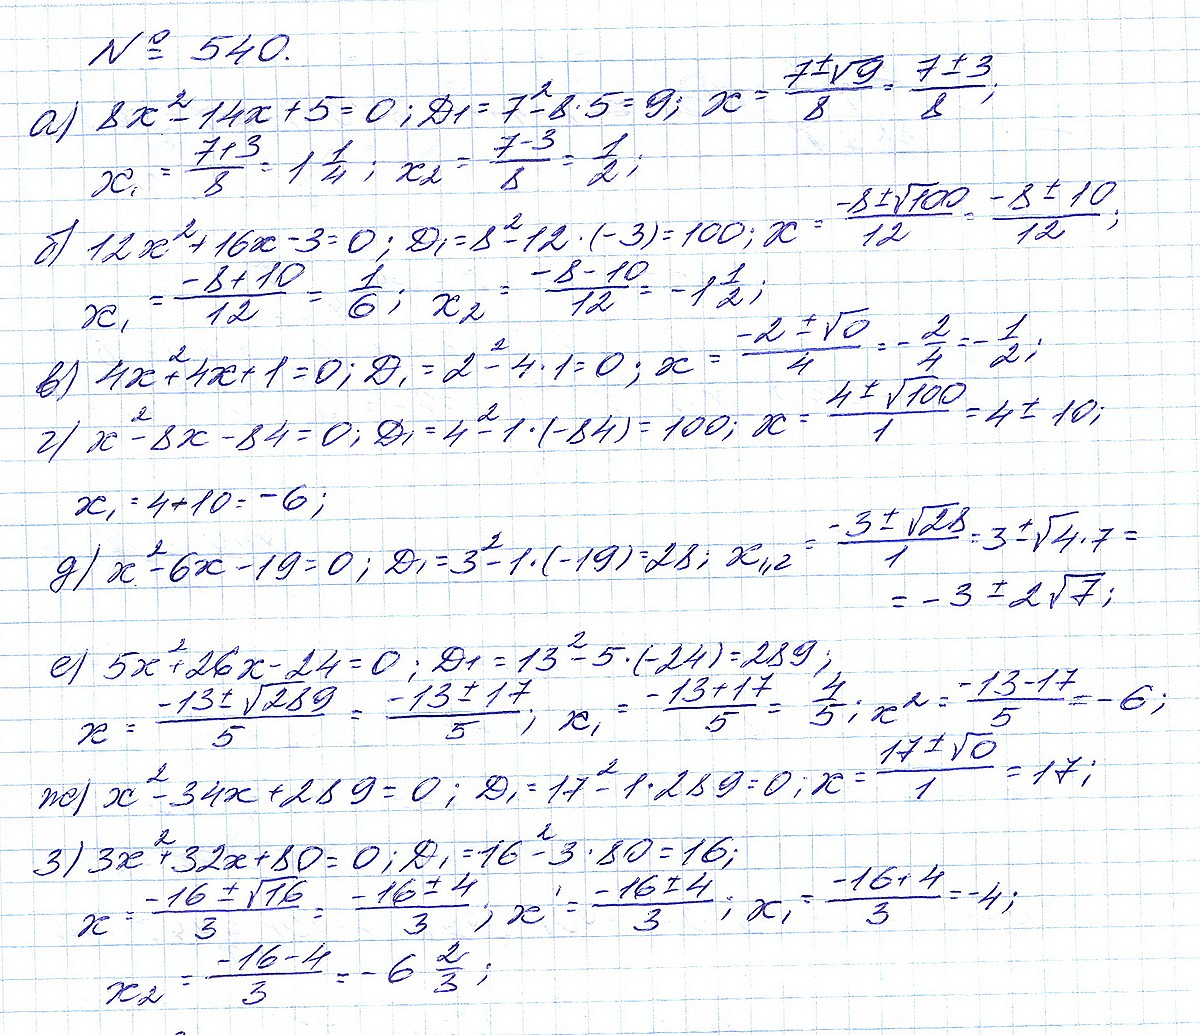 № 540.
а) 8x² - 14x + 5 = 0; D₁ = 7² - 8·5 = 9; x = (7±√9)/8 = (7±3)/8;
x₁ = (7+3)/8 = 1 1/4; x₂ = (7-3)/8 = 1/2;
б) 12x² + 16x - 3 = 0; D₁ = 8² - 12·(-3) = 100; x = (-8±√100)/12 = (-8±10)/12;
x₁ = (-8+10)/12 = 1/6; x₂ = (-8-10)/12 = -1 1/2;
в) 4x² + 4x + 1 = 0; D₁ = 2² - 4·1 = 0; x = (-2±√0)/4 = -2/4 = -1/2;
г) x² - 8x - 84 = 0; D₁ = 4² - 1·(-84) = 100; x = (4±√100)/1 = 4±10;
x₁ = 4+10 = -6;
д) x² - 6x - 19 = 0; D₁ = 3² - 1·(-19) = 28; x₁,₂ = (-3±√28)/1 = 3±√4·7 =
= -3±2√7;
е) 5x² + 26x - 24 = 0; D₁ = 13² - 5·(-24) = 289;
x = (-13±√289)/5 = (-13±17)/5; x₁ = (-13+17)/5 = 4/5; x₂ = (-13-17)/5 = -6;
ж) x² - 34x + 289 = 0; D₁ = 17² - 1·289 = 0; x = (17±√0)/1 = 17;
з) 3x² + 32x + 80 = 0; D₁ = 16² - 3·80 = 16;
x = (-16±√16)/3 = (-16±4)/3; x = (-16±4)/3; x₁ = (-16+4)/3 = -4;
x₂ = (-16-4)/3 = -6 2/3;